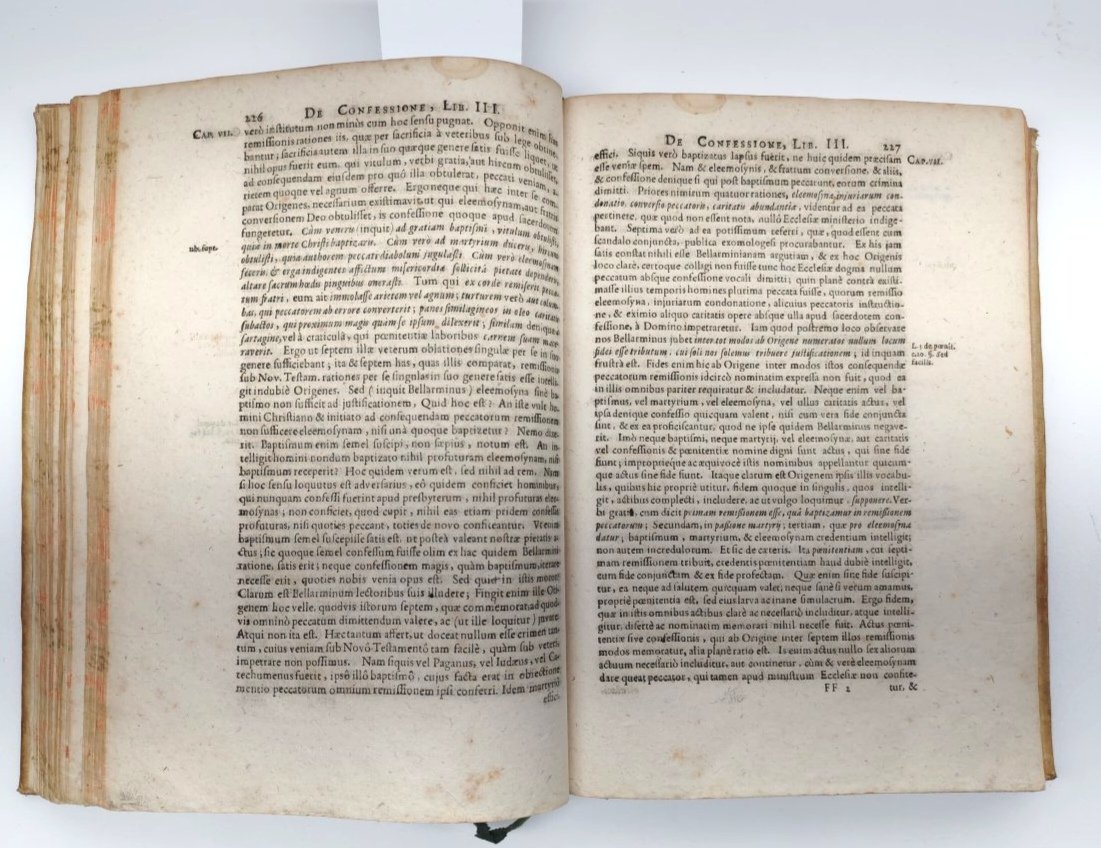 226
DE CONFESSIONE, LIB. III.
CAP. VII.
verò institutum non minùs cum hoc sensu pugnat. Opponit enim
remissionis rationes iis, quæ per sacrificia à veteribus sub lege obtine-
bantur; sacrificia autem illa in suo quæque genere satis fuisse liquet,
nihil opus fuerit eum, qui vitulum, verbi gratia, aut hircum obtulisset,
ad consequendam ejusdem pro quò illa obtulerat, peccati veniam,
rietem quoque vel agnum offerre. Ergo neque qui hæc inter se com-
parat Origenes, necessarium existimavit, ut qui eleemosynam, aut fratris
conversionem Deo obtulisset, is confessione quoque apud sacerdotem
fungeretur. Cùm veneris (inquit) ad gratiam baptismi, vitulum obtulisti,
ub. supr.
quia in morte Christi baptizaris. Cùm verò ad martyrium duceris, hircum
obtulisti, quia authorem peccati diabolum jugulasti. Cùm verò eleemosynam
feceris, & erga indigentes affectum misericordiæ sollicitâ pietate dependeris,
altare sacrum hœdis pinguibus onerasti. Tum qui ex corde remiserit pecca-
tum fratri, eum ait immolasse arietem vel agnum; turturem verò aut colum-
bas, qui peccatorem ab errore converterit; panes similagineos in oleo caritatis
subactos, qui proximum magis quàm se ipsum dilexerit; similam denique
sartagine, vel à craticulâ, qui pœnitentiæ laboribus carnem suam mace-
raverit. Ergo ut septem illæ veterum oblationes singulæ per se in suo
genere sufficiebant; ita & septem has, quas illis comparat, remissionis
sub Nov. Testam. rationes per se singulas in suo genere satis esse intelli-
git indubiè Origenes. Sed (inquit Bellarminus) eleemosyna sine ba-
ptismo non sufficit ad justificationem. Quid hoc est? An iste vult ho-
mini Christiano & initiato ad consequendam peccatorum remissionem
non sufficere eleemosynam, nisi unà quoque baptizetur? Nemo dixe-
rit. Baptismum enim semel suscipi, non sæpius, notum est. An in-
telligit homini nondum baptizato nihil profuturam eleemosynam, nisi
baptismum receperit? Hoc quidem verum est. sed nihil ad rem. Nam
si hoc sensu loquutus est adversarius, eò quidem conficiet hominibus,
qui nunquam confessi fuerint apud presbyterum, nihil profuturas elee-
mosynas; non conficiet, quod cupit, nihil eas etiam pridem confessis
profuturas, nisi quoties peccant, toties de novo conficeantur. Ut enim
baptismum semel suscepisse satis est. ut posteà valeant nostræ pietatis a-
ctus; sic quoque semel confessum fuisse olim ex hac quidem Bellarmini
ratione, satis erit; neque confessionem magis, quàm baptismum, iterare
necesse erit, quoties nobis venia opus est. Sed quid in istis moror?
Clarum est Bellarminum lectoribus suis illudere; Fingit enim ille Ori-
genem hoc velle. quodvis istorum septem, quæ commemorat, ad quod-
vis omninò peccatum dimittendum valere, ac (ut ille loquitur) juvare.
Atqui non ita est. Hæc tantum affert, ut doceat nullum esse crimen tan-
tum, cuius veniam sub Novô-Testamentô tam facilè, quàm sub veteri
impetrare non possimus. Nam siquis vel Paganus, vel Iudæus, vel Ca-
techumenus fuerit, ipsô illô baptismô, cujus facta erat in obiectione
mentio peccatorum omnium remissionem ipsi conferri. Idem martyrio
effici.
DE CONFESSIONE, LIB. III.
227
CAP. VII.
effici. Siquis verò baptizatus lapsus fuerit, ne huic quidem præcisam
esse veniæ spem. Nam & eleemosynis, & fratrum conversione, & aliis,
& confessione denique si qui post baptismum peccarunt, eorum crimina
dimitti. Priores nimirum quatuor rationes, eleemosyna, injuriarum con-
donatio, conversio peccatoris, caritatis abundantia, videntur ad ea peccata
pertinere, quæ quod non essent nota, nullô Ecclesiæ ministerio indige-
bant. Septima verò ad ea potissimum referri, quæ, quod essent cum
scandalo conjuncta, publica exomologesi procurabantur. Ex his jam
satis constat nihil esse Bellarminianam argutiam, & ex hoc Origenis
loco clarè, certoque colligi non fuisse tunc hoc Ecclesiæ dogma nullum
peccatum absque confessione vocali dimitti; quin planè contrà existi-
masse illius temporis homines plurima peccata fuisse, quorum remissio
eleemosyna, injuriarum condonatione, alicuius peccatoris instructio-
ne, & eximio aliquo caritatis opere absque ulla apud sacerdotem con-
fessione, à Domino impetraretur. Iam quod postremo loco observare
nos Bellarminus jubet inter tot modos ab Origene numeratos nullum locum
L. 1. de pœnit.
fidei esse tributum, cui soli nos solemus tribuere justificationem; id inquam
c. 20. §. Sed
frustrà est. Fides enim hic ab Origene inter modos istos consequendæ
facilis.
peccatorum remissionis idcircò nominatim expressa non fuit, quod ea
in illis omnibus pariter requiratur & includatur. Neque enim vel ba-
ptismus, vel martyrium, vel eleemosyna, vel ullus caritatis actus, vel
ipsa denique confessio quicquam valent, nisi cum vera fide conjuncta
sint, & ex ea proficiscantur, quod ne ipse quidem Bellarminus negave-
rit. Imò neque baptismi, neque martyrij, vel eleemosynæ, aut caritatis
vel confessionis & pœnitentiæ nomine digni sunt actus, qui sine fide
fiunt; impropriéque ac æquivocè istis nominibus appellantur quicum-
que actus sine fide fiunt. Itaque clarum est Origenem ipsis illis vocabu-
lis, quibus hic propriè utitur, fidem quoque in singulis, quos intelli-
git, actibus complecti, includere, ac ut vulgo loquimur, supponere. Ver-
bi gratiâ, cum dicit primam remissionem esse, quâ baptizamur in remissionem
peccatorum; Secundam, in passione martyrij; tertiam, quæ pro eleemosyna
datur; baptismum, martyrium, & eleemosynam credentium intelligit;
non autem incredulorum. Et sic de cæteris. Ita pœnitentiam, cui septi-
mam remissionem tribuit, credentis pœnitentiam haud dubiè intelligit,
cum fide conjunctam & ex fide profectam. Quæ enim sine fide suscipi-
tur, ea neque ad salutem quicquam valet, neque sanè si verum amamus,
propriè pœnitentia est, sed eius larva ac inane simulacrum. Ergo fidem,
quæ in istis omnibus actibus clarè ac necessariò includitur, atque intelli-
gitur, disertè ac nominatim memorari nihil necesse fuit. Actus pœni-
tentiæ sive confessionis, qui ab Origine inter septem illos remissionis
modos memoratur, alia planè ratio est. Is enim actus nullo sex aliorum
actuum necessariò includitur, aut continetur, cùm & verè eleemosynam
dare queat peccator, qui tamen apud ministrum Ecclesiæ non confite-
FF 2
tur, &